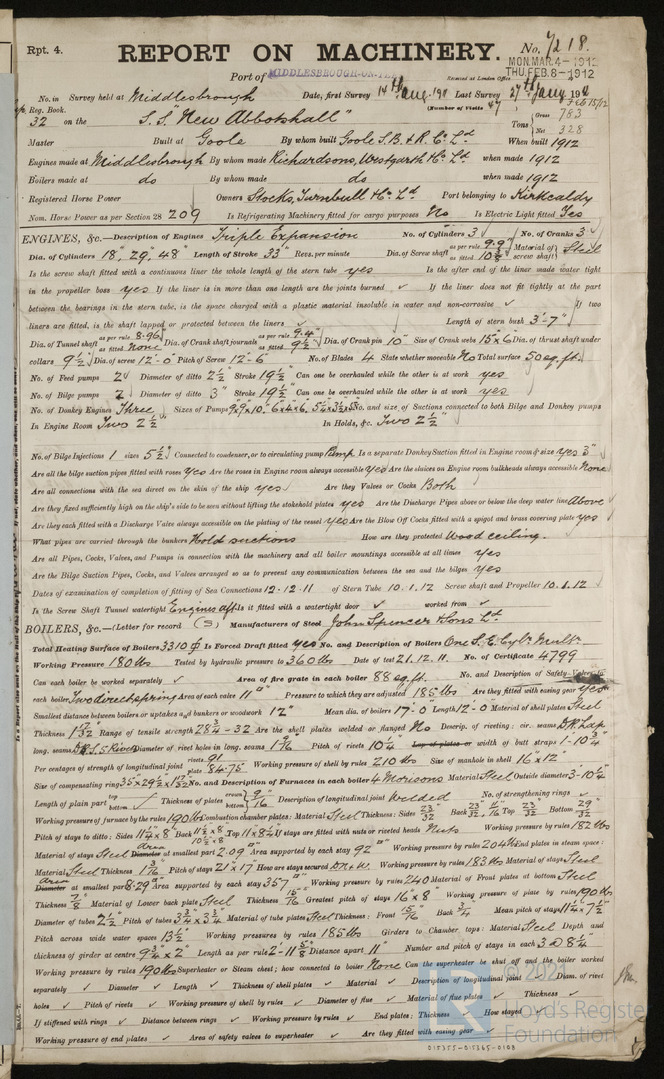 Rpt. 4.
REPORT ON MACHINERY.
No. 7218.
MON. MAR. 4 - 1912
THU. FEB. 8 - 1912
Port of MIDDLESBROUGH-ON-TEES
Received at London Office
No. in Survey held at Middlesbrough Date, first Survey 14th Aug. 1911 Last Survey 27th Jany 1912
Reg. Book. (Number of Visits 47
32 on the S.S. "New Abbotshall" Tons Gross 783 Net 328
Master Built at Goole By whom built Goole S.B. & R. Co. Ld When built 1912
Engines made at Middlesbrough By whom made Richardsons, Westgarth & Co. Ld when made 1912
Boilers made at do By whom made do when made 1912
Registered Horse Power Owners Stocks, Turnbull & Co. Ld Port belonging to Kirkcaldy
Nom. Horse Power as per Section 28 209 Is Refrigerating Machinery fitted for cargo purposes No Is Electric Light fitted Yes
ENGINES, &c.—Description of Engines Triple Expansion No. of Cylinders 3 No. of Cranks 3
Dia. of Cylinders 18", 29", 48" Length of Stroke 33" Revs. per minute Dia. of Screw shaft as per rule 9.9 as fitted 10 3/8 Material of screw shaft Steel
Is the screw shaft fitted with a continuous liner the whole length of the stern tube yes Is the after end of the liner made water tight
in the propeller boss yes If the liner is in more than one length are the joints burned ✓ If the liner does not fit tightly at the part
between the bearings in the stern tube, is the space charged with a plastic material insoluble in water and non-corrosive ✓ If two
liners are fitted, is the shaft lapped or protected between the liners ✓ Length of stern bush 3'-7"
Dia. of Tunnel shaft as per rule 8.96 as fitted None Dia. of Crank shaft journals as per rule 9.4" as fitted 9 1/2" Dia. of Crank pin 10" Size of Crank webs 15"x6" Dia. of thrust shaft under
collars 9 1/2" Dia. of screw 12'-0" Pitch of Screw 12'-6" No. of Blades 4 State whether moveable No Total surface 50 sq. ft.
No. of Feed pumps 2 Diameter of ditto 2 1/2" Stroke 19 1/2" Can one be overhauled while the other is at work yes
No. of Bilge pumps 2 Diameter of ditto 3" Stroke 19 1/2" Can one be overhauled while the other is at work yes
No. of Donkey Engines Three Sizes of Pumps 9"x9"x10", 6"x4"x6", 5 1/4"x3 1/2"x5" No. and size of Suctions connected to both Bilge and Donkey pumps
In Engine Room Two 2 1/2" In Holds, &c. Two 2 1/2"
No. of Bilge Injections 1 sizes 5 1/2" Connected to condenser, or to circulating pump Pump Is a separate Donkey Suction fitted in Engine room & size yes 3"
Are all the bilge suction pipes fitted with roses Yes Are the roses in Engine room always accessible Yes Are the sluices on Engine room bulkheads always accessible None
Are all connections with the sea direct on the skin of the ship yes Are they Valves or Cocks Both
Are they fixed sufficiently high on the ship's side to be seen without lifting the stokehold plates yes Are the Discharge Pipes above or below the deep water line Above
Are they each fitted with a Discharge Valve always accessible on the plating of the vessel yes Are the Blow Off Cocks fitted with a spigot and brass covering plate yes
What pipes are carried through the bunkers Hold suctions How are they protected Wood ceiling.
Are all Pipes, Cocks, Valves, and Pumps in connection with the machinery and all boiler mountings accessible at all times yes
Are the Bilge Suction Pipes, Cocks, and Valves arranged so as to prevent any communication between the sea and the bilges yes
Dates of examination of completion of fitting of Sea Connections 12.12.11 of Stern Tube 10.1.12 Screw shaft and Propeller 10.1.12
Is the Screw Shaft Tunnel watertight Engine aft Is it fitted with a watertight door ✓ worked from ✓
BOILERS, &c.—(Letter for record (S) Manufacturers of Steel John Spencer & Sons Ld
Total Heating Surface of Boilers 3310 Is Forced Draft fitted yes No. and Description of Boilers One S.E. Cylr Multr
Working Pressure 180 lbs Tested by hydraulic pressure to 360 lbs Date of test 21.12.11. No. of Certificate 4799
Can each boiler be worked separately ✓ Area of fire grate in each boiler 88 sq. ft. No. and Description of Safety Valves to
each boiler Two direct spring Area of each valve 11" Pressure to which they are adjusted 185 lbs Are they fitted with easing gear yes
Smallest distance between boilers or uptakes and bunkers or woodwork 12" Mean dia. of boilers 17'-0" Length 12'-0" Material of shell plates Steel
Thickness 1 13/32 Range of tensile strength 28 3/4 - 32 Are the shell plates welded or flanged No Descrip. of riveting: cir. seams D.R. Lap
long. seams D.B.S. 5 Rivets Diameter of rivet holes in long. seams 1 9/16 Pitch of rivets 10 1/4 Lap of plates or width of butt straps 1'-10 3/4"
Per centages of strength of longitudinal joint rivets 91 plate 84.75 Working pressure of shell by rules 210 lbs Size of manhole in shell 16"x12"
Size of compensating ring 35"x29 1/2"x1 13/32 No. and Description of Furnaces in each boiler 4 Morisons Material Steel Outside diameter 3'-10 1/4"
Length of plain part top bottom Thickness of plates crown bottom 9/16 Description of longitudinal joint Welded No. of strengthening rings ✓
Working pressure of furnace by the rules 190 lbs Combustion chamber plates: Material Steel Thickness: Sides 23/32 Back 23/32, 11/16 Top 23/32 Bottom 29/32
Pitch of stays to ditto: Sides 11 1/4"x8" Back 11 1/2"x8 10 1/2"x8 Top 11"x8 1/4" If stays are fitted with nuts or riveted heads Nuts Working pressure by rules 182 lbs
Material of stays Steel Area Diameter at smallest part 2.09" Area supported by each stay 92" Working pressure by rules 204 lbs End plates in steam space:
Material Steel Thickness 1 3/16 Pitch of stays 21"x17" How are stays secured D.N. & W. Working pressure by rules 183 lbs Material of stays Steel
Area Diameter at smallest part 8.29 Area supported by each stay 357" Working pressure by rules 240 Material of Front plates at bottom Steel
Thickness 7/8 Material of Lower back plate Steel Thickness 15/16 Greatest pitch of stays 16"x8" Working pressure of plate by rules 190 lbs
Diameter of tubes 2 1/2" Pitch of tubes 3 3/4"x3 3/4" Material of tube plates Steel Thickness: Front 15/16 Back 3/4 Mean pitch of stays 11 1/4"x7 1/2"
Pitch across wide water spaces 13 1/2" Working pressures by rules 185 lbs Girders to Chamber tops: Material Steel Depth and
thickness of girder at centre 9 3/4"x2" Length as per rule 2'-11 5/8" Distance apart 11" Number and pitch of stays in each 3 @ 8 1/4"
Working pressure by rules 190 lbs Superheater or Steam chest; how connected to boiler None Can the superheater be shut off and the boiler worked
separately ✓ Diameter ✓ Length ✓ Thickness of shell plates ✓ Material ✓ Description of longitudinal joint ✓ Diam. of rivet
holes ✓ Pitch of rivets ✓ Working pressure of shell by rules ✓ Diameter of flue ✓ Material of flue plates ✓ Thickness
If stiffened with rings ✓ Distance between rings ✓ Working pressure by rules ✓ End plates: Thickness How stayed
Working pressure of end plates ✓ Area of safety valves to superheater ✓ Are they fitted with easing gear ✓
© 2021
Lloyd's Register
Foundation
015355-015365-0108